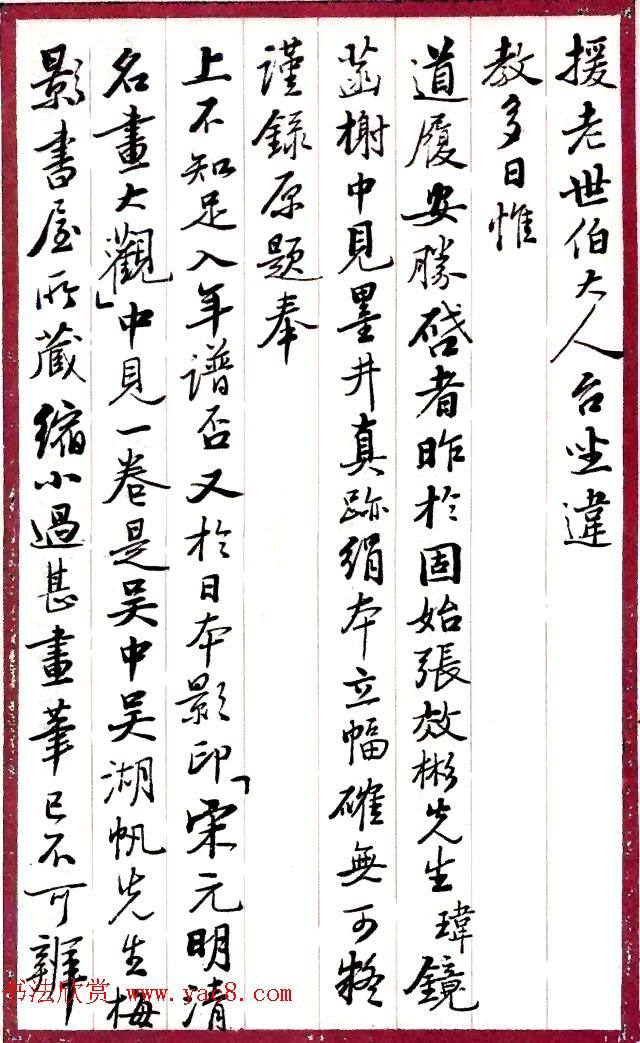 援老世伯大人台坐違
教多日惟
道履安勝啓者昨於固始張效彬先生瑋鏡
菡榭中見墨井真跡絹本立幅確無可疑
謹錄原題奉
上不知足入年譜否又於日本影印「宋元明清
名畫大觀」中見一卷是吳中吳湖帆先生梅
影書屋所藏縮小過甚畫筆已不可辨
书法欣赏 www.yac8.com